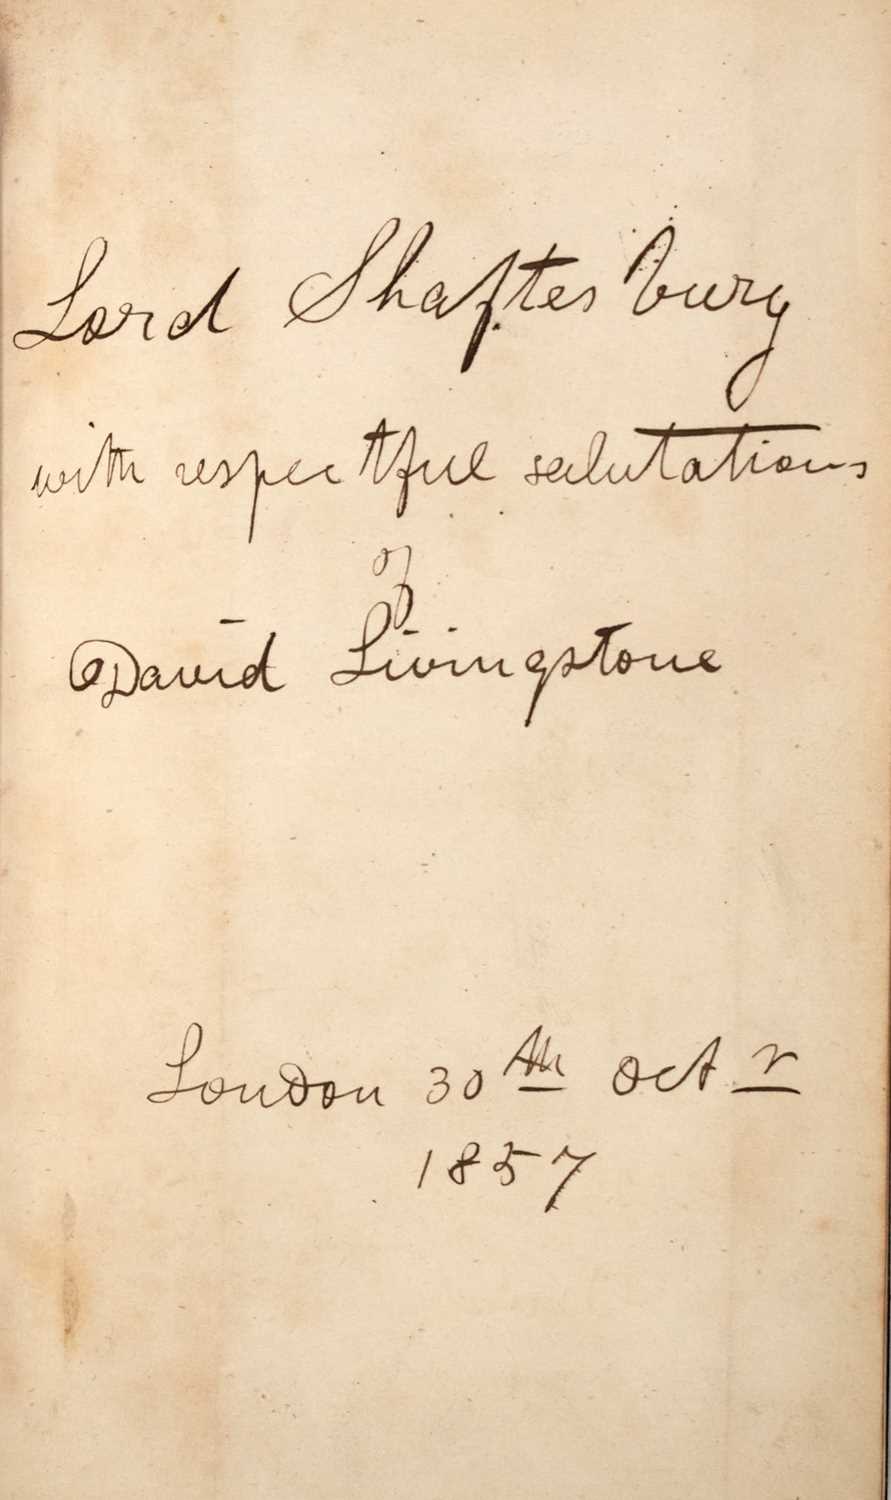 Lord Shaftesbury
with respectful salutations
of
David Livingstone
London 30th Octr
1857